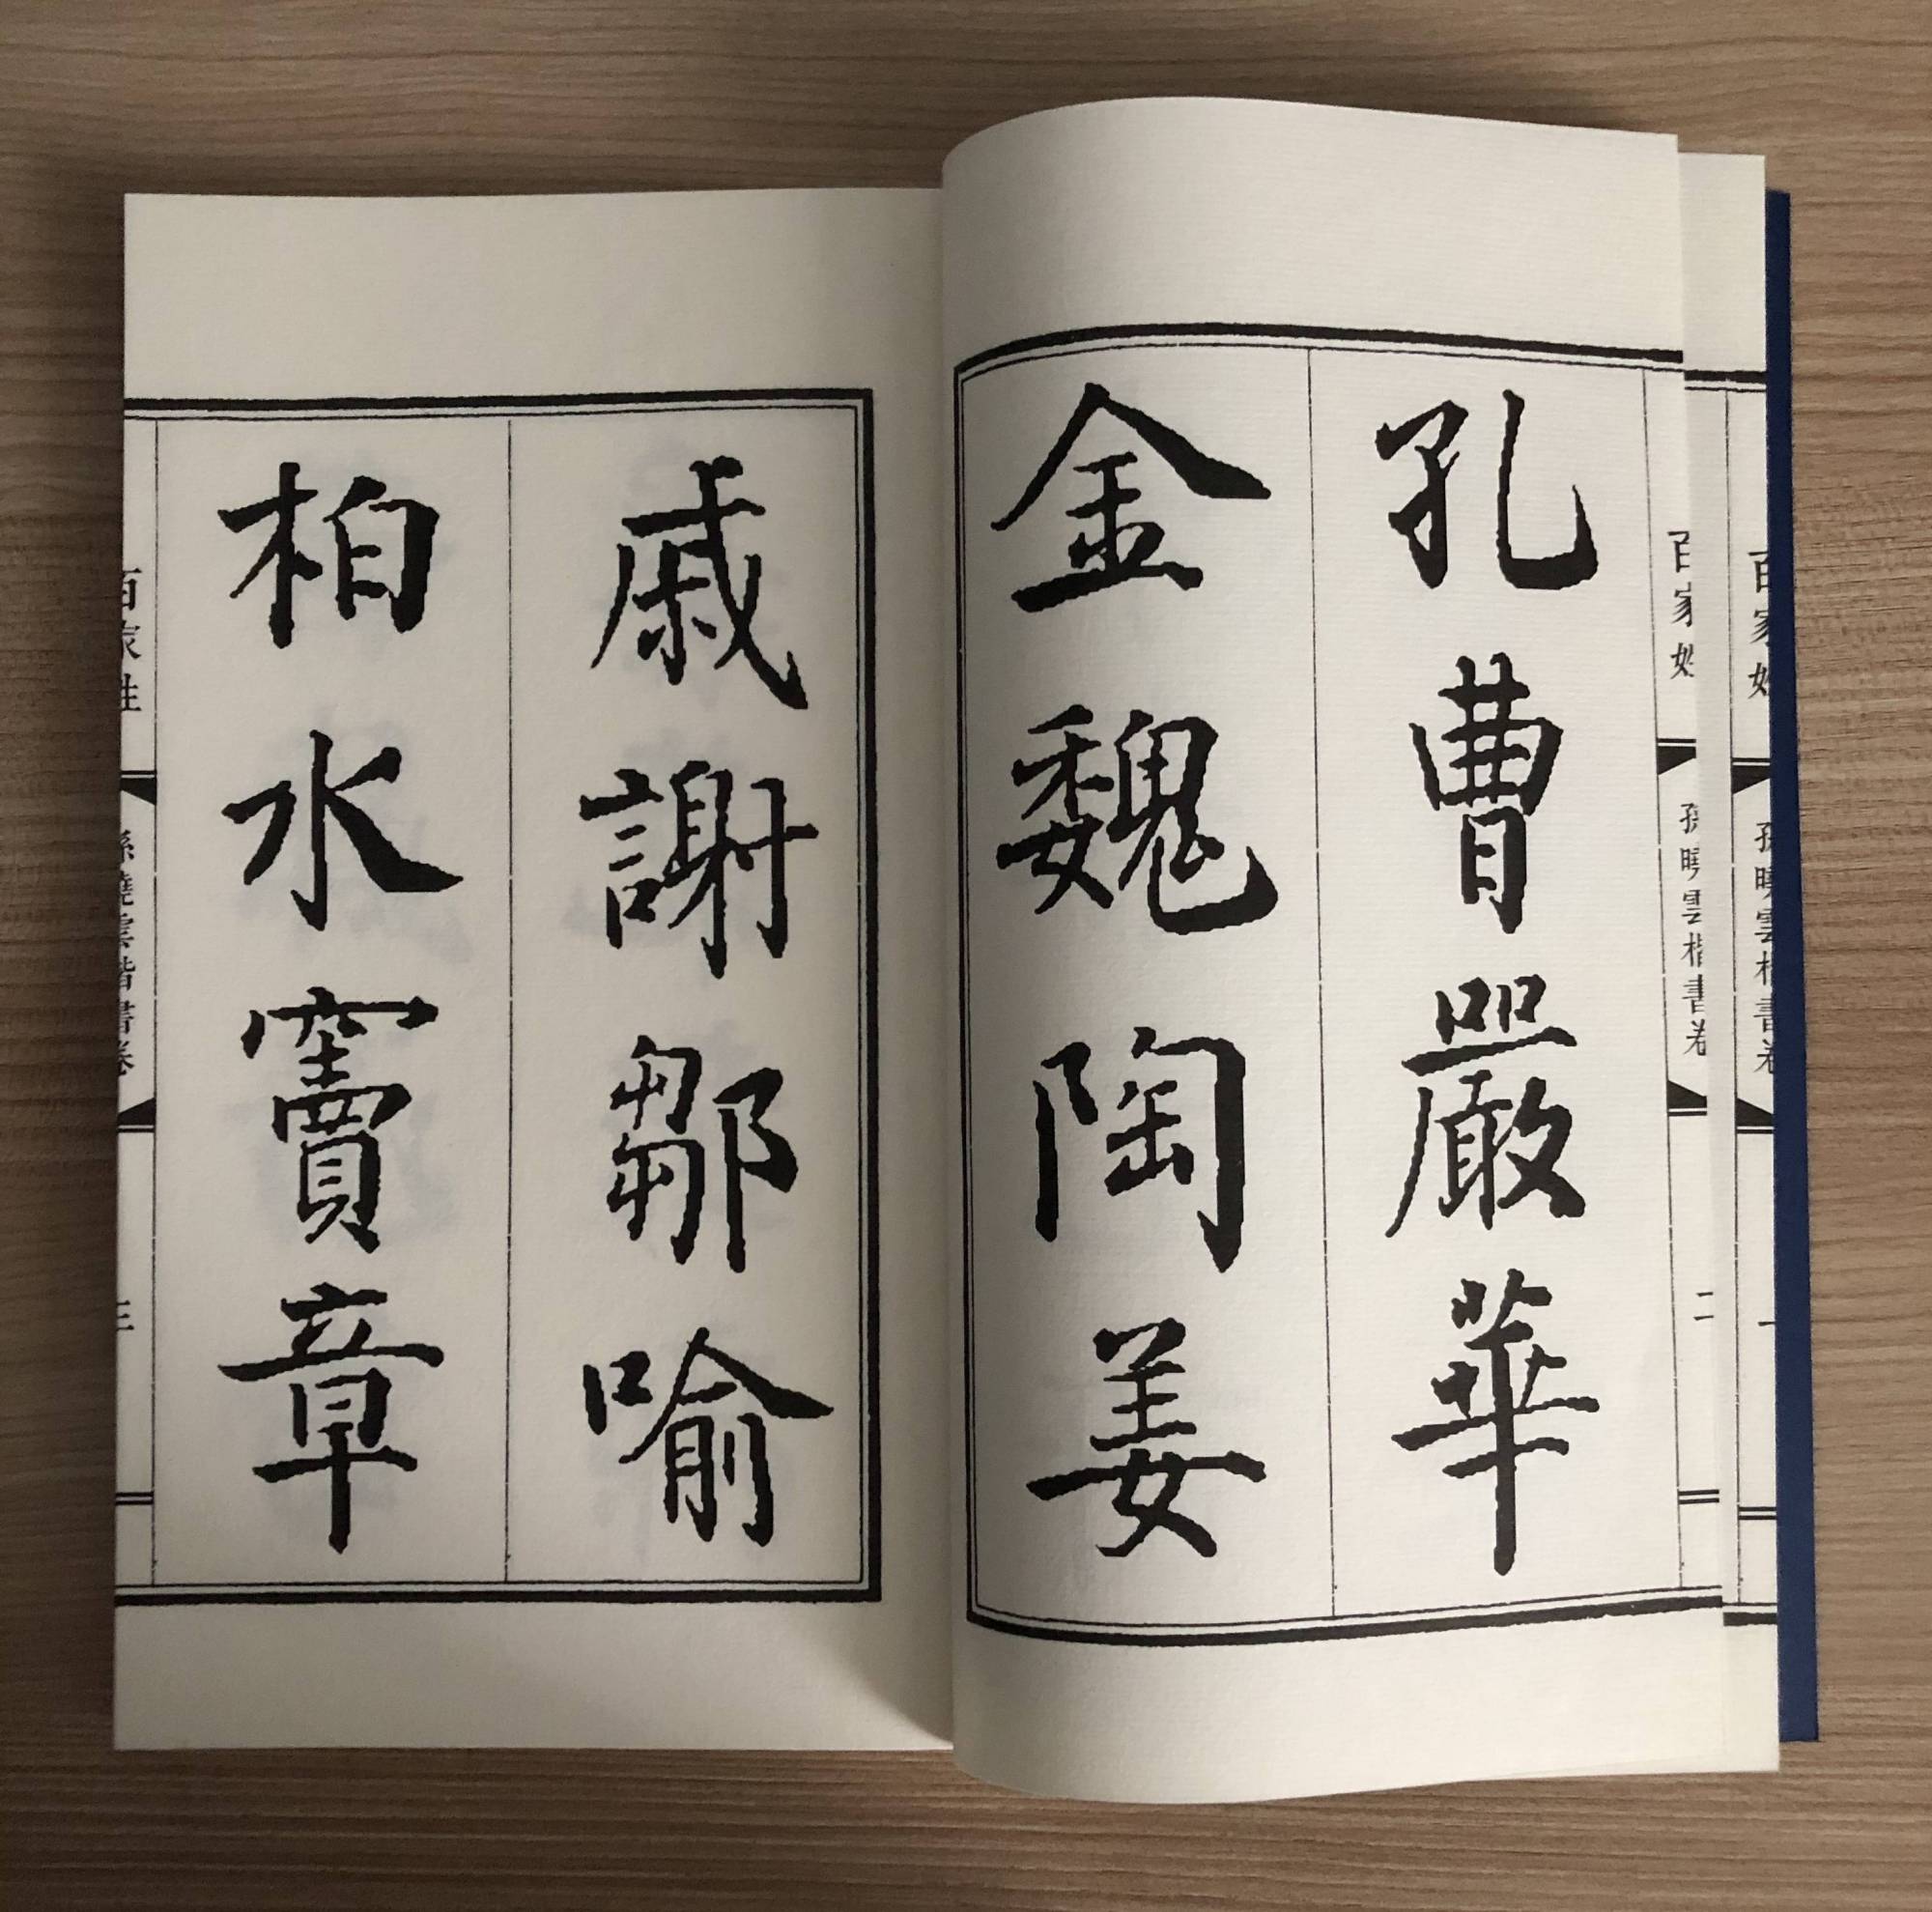 百家姓
孫曉雲楷書卷
一
百家姓
孫曉雲楷書卷
二
孔曹嚴華
金魏陶姜
戚謝鄒喻
柏水竇章
百家姓
孫曉雲楷書卷
三